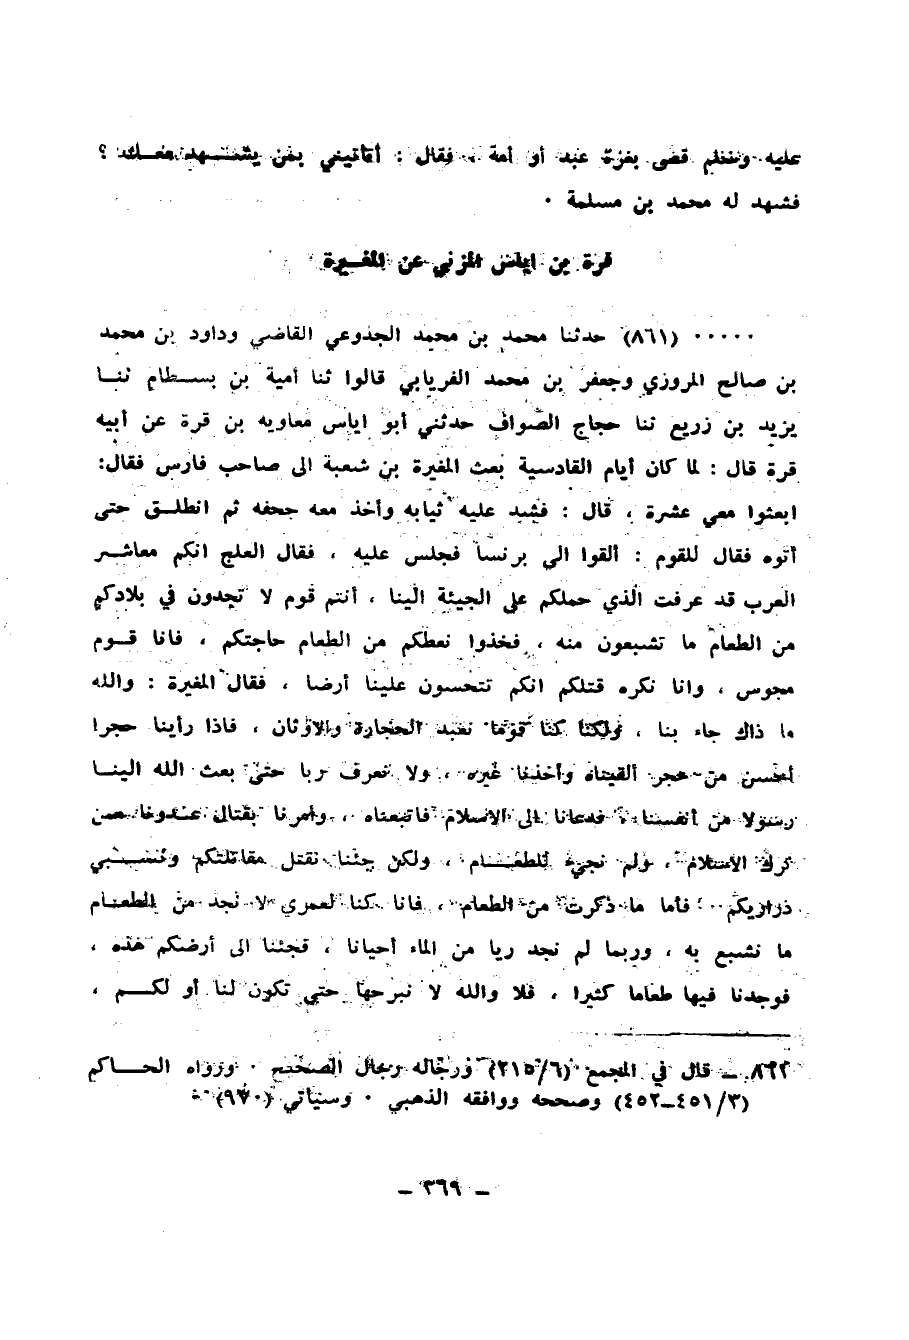 عليه وسلم قضى بغرة عبد أو أمة ، فقال : أتأتيني بمن يشهد معك ؟
فشهد له محمد بن مسلمة ٠
قرة بن اياس المزني عن المغيرة
٠٠٠٠٠ (٨٦١) حدثنا محمد بن محمد الجذوعي القاضي وداود بن محمد
بن صالح المروزي وجعفر بن محمد الفريابي قالوا ثنا أمية بن بسطام ثنا
يزيد بن زريع ثنا حجاج الصواف حدثني أبو اياس معاويه بن قرة عن أبيه
قرة قال : لما كان أيام القادسية بعث المغيرة بن شعبة الى صاحب فارس فقال:
ابعثوا معي عشرة ، قال : فشد عليه ثيابه وأخذ معه جحفه ثم انطلق حتى
أتوه فقال للقوم : ألقوا الي برنسا فجلس عليه ، فقال العلج انكم معاشر
العرب قد عرفت الذي حملكم على الجيئة الينا ، أنتم قوم لا تجدون في بلادكم
من الطعام ما تشبعون منه ، فخذوا نعطكم من الطعام حاجتكم ، فانا قوم
مجوس ، وانا نكره قتلكم انكم تنحسون علينا أرضا ، فقال المغيرة : والله
ما ذاك جاء بنا ، ولكنا كنا قوما نعبد الحجارة والأوثان ، فاذا رأينا حجرا
أحسن من حجر ألقيناه وأخذنا غيره ، ولا نعرف ربا حتى بعث الله الينا
رسولا من أنفسنا ، فدعانا الى الاسلام فاتبعناه ، وأمرنا بقتال عدونا ممن
ترك الاسلام ، ولم نجيء للطعام ، ولكن جئنا نقتل مقاتلتكم ونسبي
ذراريكم ٠ فأما ما ذكرت من الطعام ، فانا كنا لعمري لا نجد من الطعام
ما نشبع به ، وربما لم نجد ريا من الماء أحيانا ، فجئنا الى أرضكم هذه ،
فوجدنا فيها طعاما كثيرا ، فلا والله لا نبرحها حتى تكون لنا أو لكم ،
٨٦٢ ــ قال في المجمع (٢١٥/٦) ورجاله رجال الصحيح ٠ ورواه الحاكم
(٣/٤٥١ــ٤٥٢) وصححه ووافقه الذهبي ٠ وسيأتي
ــ ٣٦٩ ــ